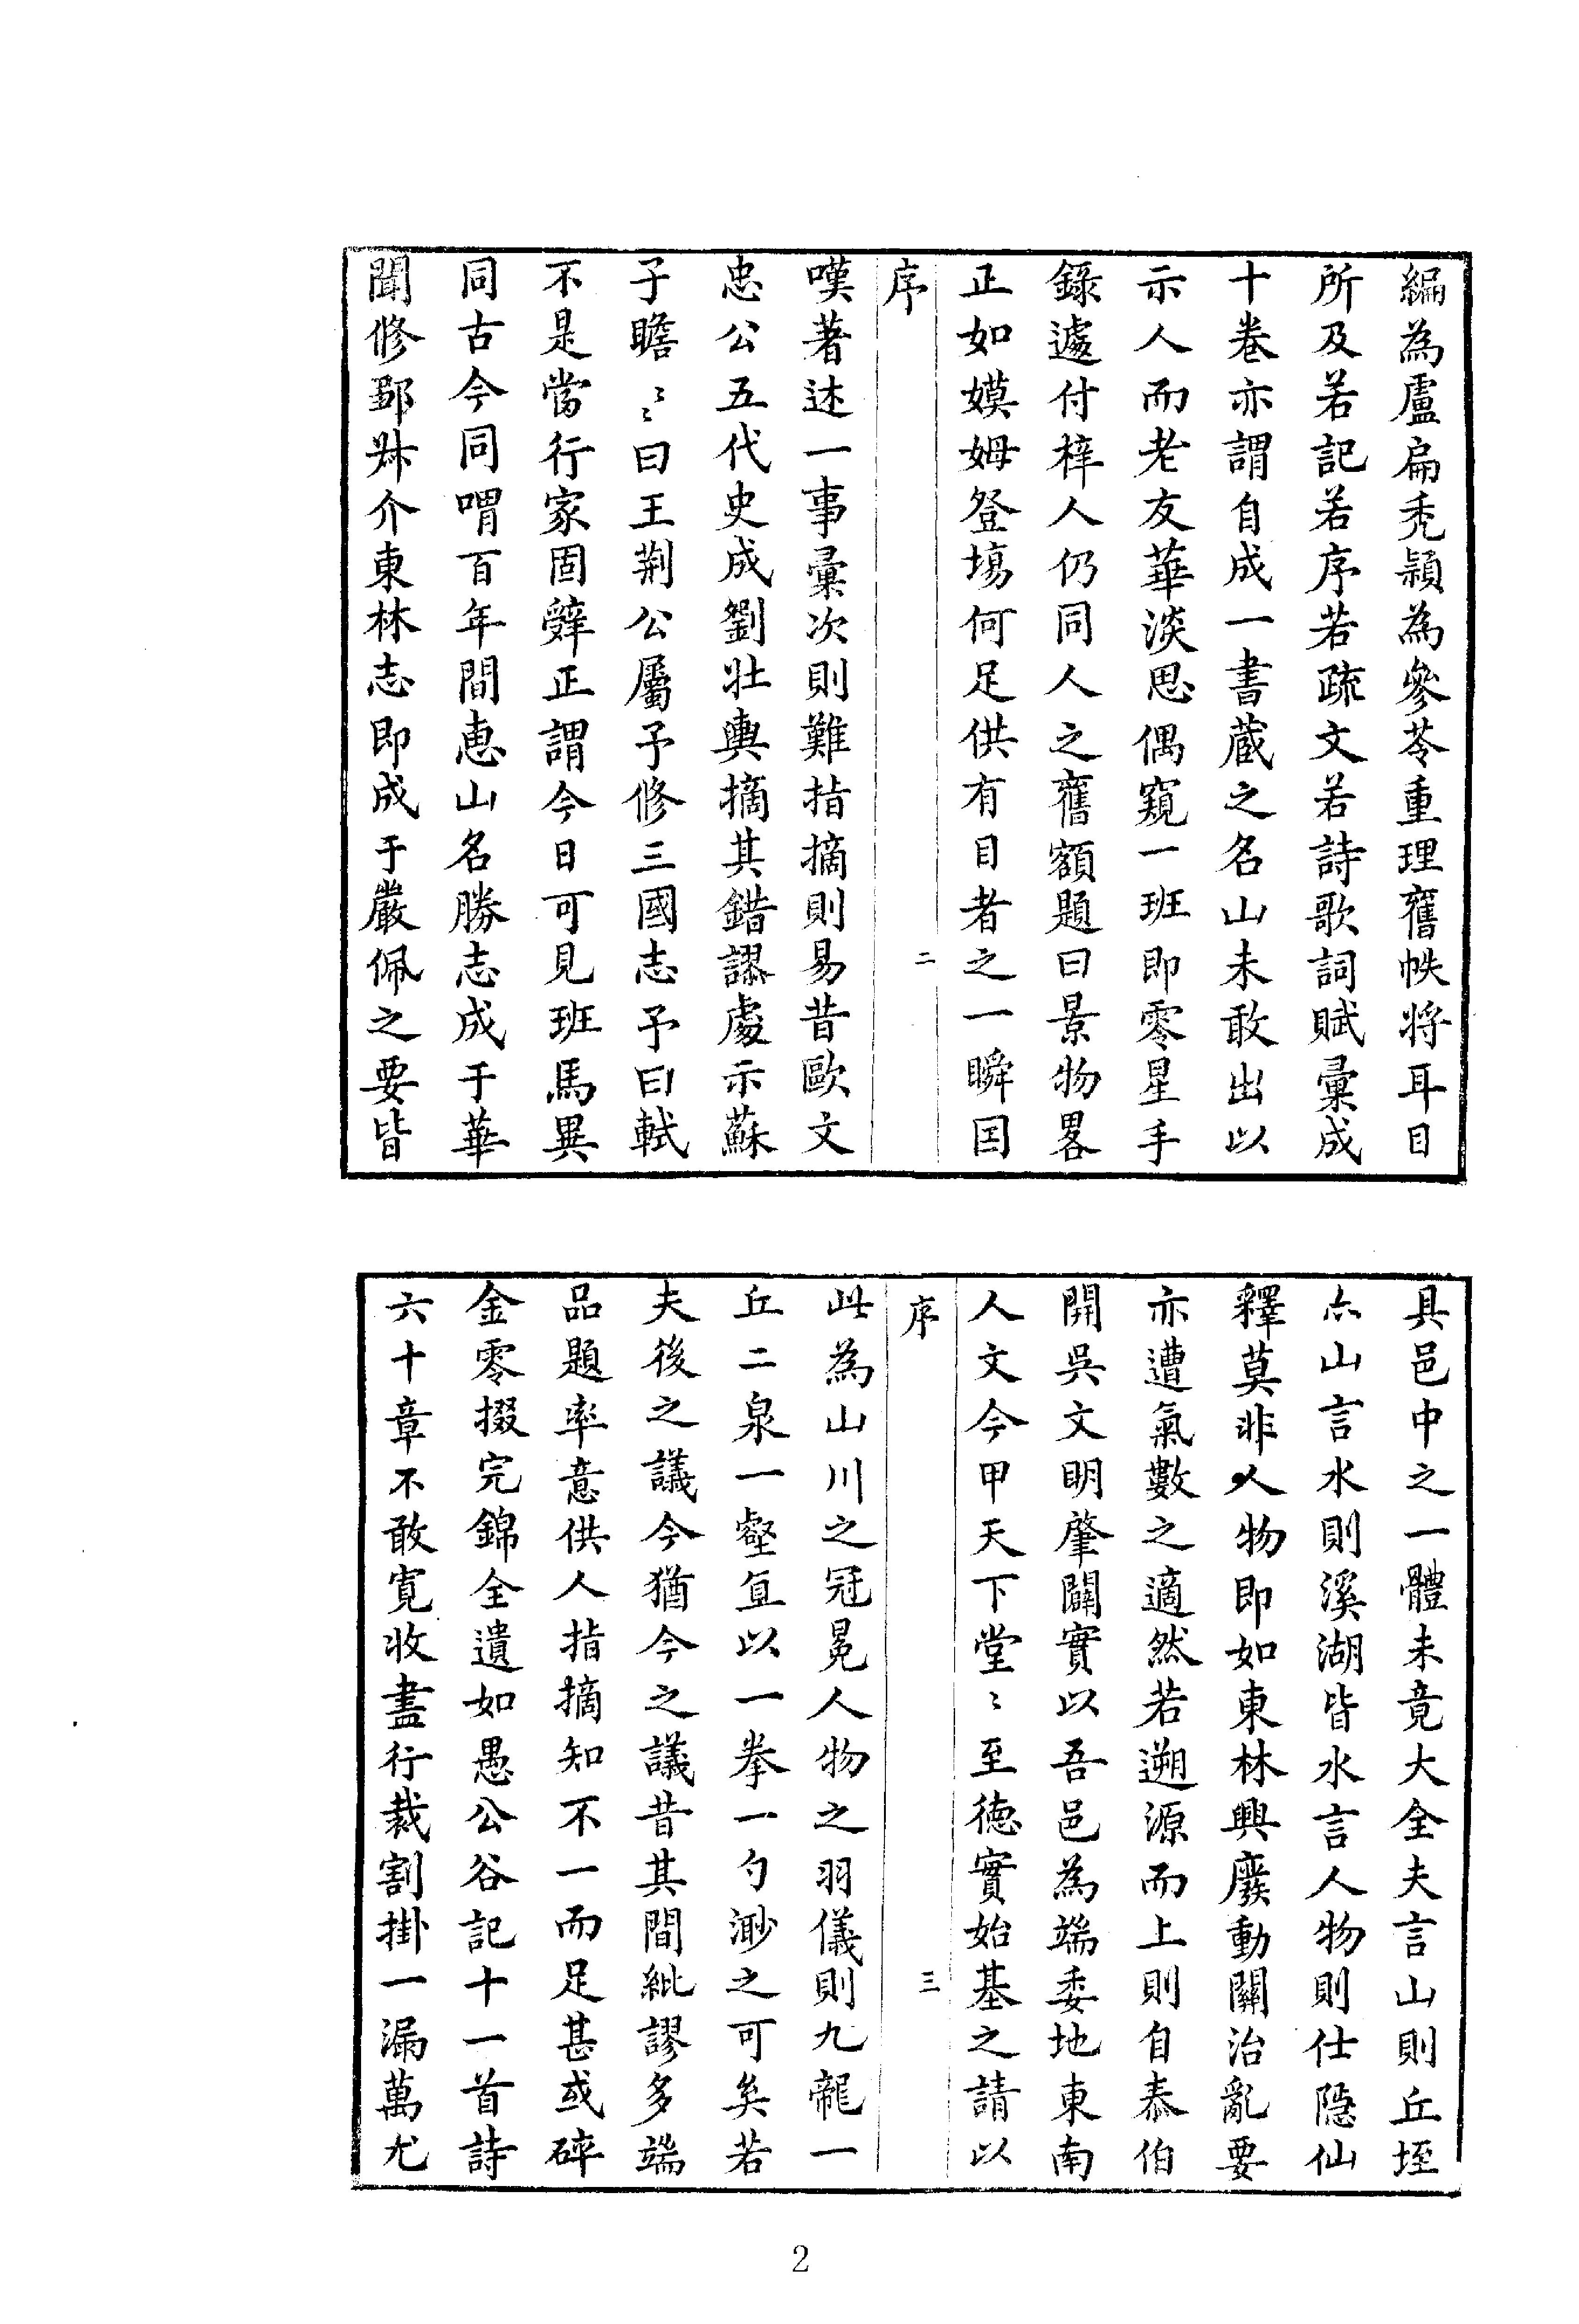 編為盧扁禿潁為參苓重理舊帙将耳目
所及若記若序若疏文若詩歌詞賦彙成
十卷亦謂自成一書蔵之名山未敢出以
示人而老友華淡思偶窺一班即零星手
錄遽付梓人仍同人之舊額題曰景物畧
正如嫫姆登塲何足供有目者之一瞬因
序
二
嘆著述一事彙次則難指摘則易昔歐文
忠公五代史成劉壯輿摘其錯謬處示蘇
子瞻〻曰王荆公屬予修三國志予曰軾
不是當行家固辭正謂今日可見班馬異
同古今同喟百年間惠山名勝志成于華
聞修鄒㳤介東林志即成于嚴佩之要皆
具邑中之一體未竟大全夫言山則丘垤
亦山言水則溪湖皆水言人物則仕隠仙
釋莫非人物即如東林興廢動關治亂要
亦遭氣數之適然若遡源而上則自泰伯
開吳文明肇闢實以吾邑為端委地東南
人文今甲天下堂〻至徳實始基之請以
序
三
此為山川之冠冕人物之羽儀則九龍一
丘二泉一壑直以一拳一勺渺之可矣若
夫後之議今猶今之議昔其間紕謬多端
品題率意供人指摘知不一而足甚或碎
金零掇完錦全遺如愚公谷記十一首詩
六十章不敢寛收盡行裁割掛一漏萬尤
2